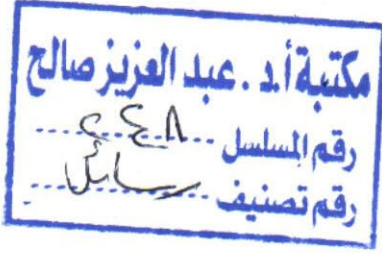 مكتبة أ.د. عبد العزيز صالح
رقم المسلسل ٢٤٨
رقم تصنيف رسائل